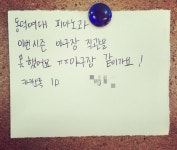 동덕여대 피아노과
이번시즌 야구장 직관을
못했어요 ㅠㅠ 야구장 같이가요!
ID